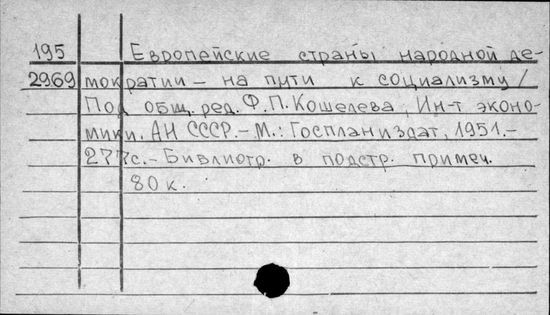 195 Европейские страны народной де-
2969 мократии – на пути к социализму /
Под общ. ред. Ф.П. Кошелева, Ин-т эконо-
мики. АН СССР. – М.: Госпланиздат, 1951. –
277с. – Библиогр. в подстр. примеч.
80 к.